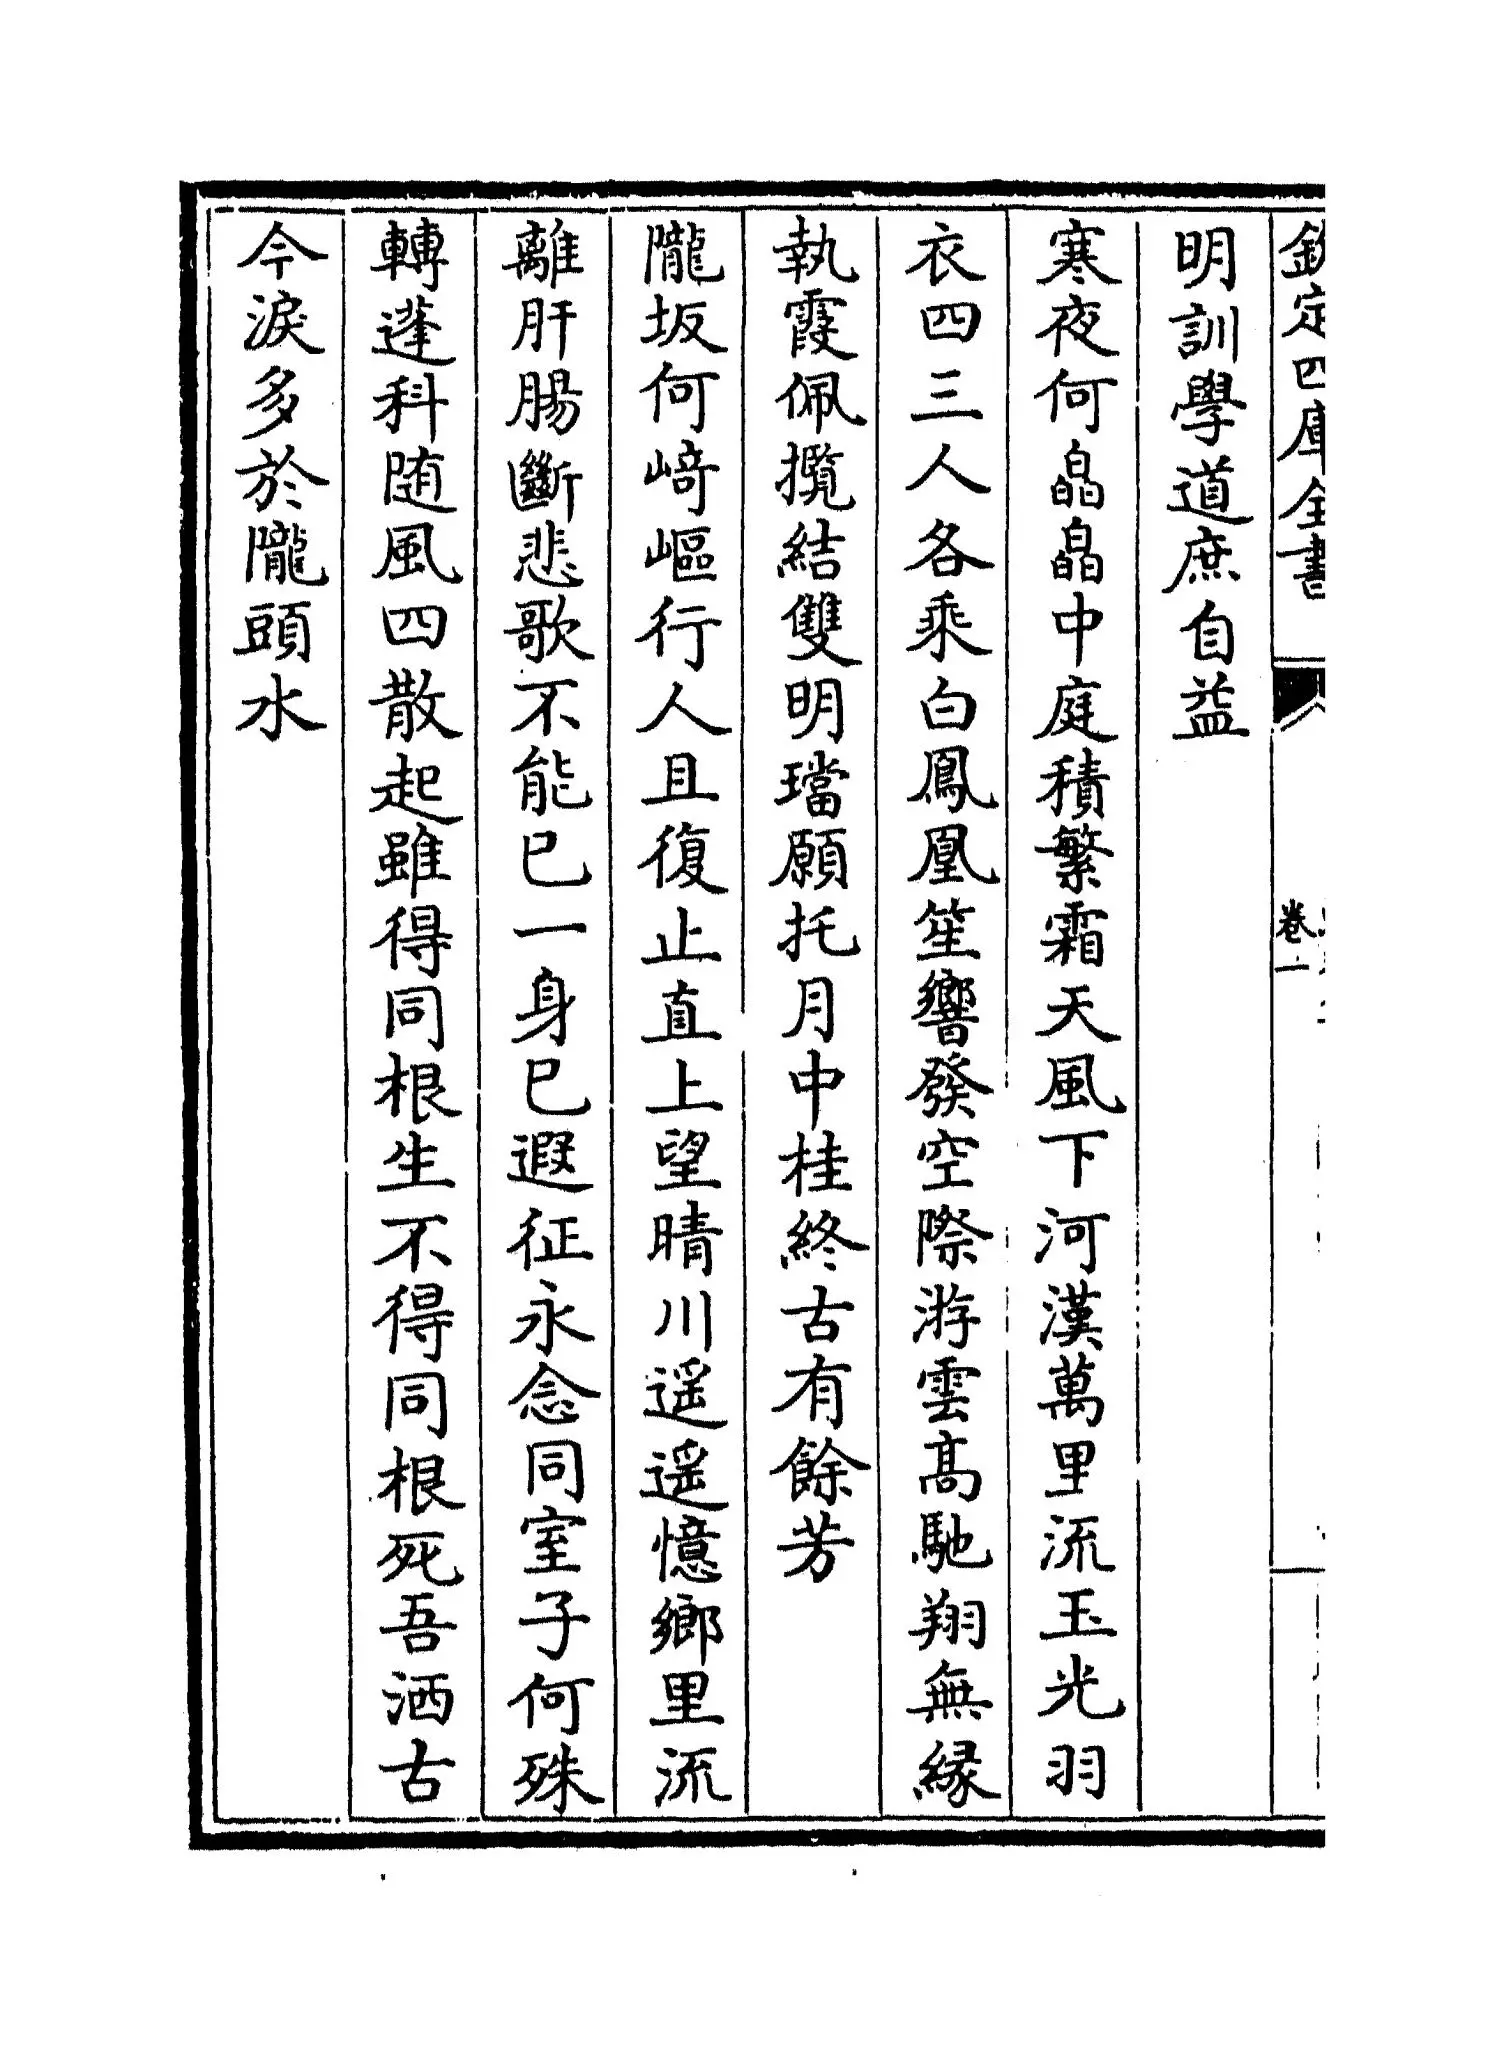 欽定四庫全書
卷一
明訓學道庶自益
寒夜何皛皛中庭積繁霜天風下河漢萬里流玉光羽
衣四三人各乘白鳳凰笙響發空際游雲高馳翔無縁
執霞佩攬結雙明璫願托月中桂終古有餘芳
隴坂何﨑嶇行人且復止直上望晴川遥遥憶鄉里流
離肝腸斷悲歌不能已一身已遐征永念同室子何殊
轉蓬科随風四散起雖得同根生不得同根死吾洒古
今淚多於隴頭水